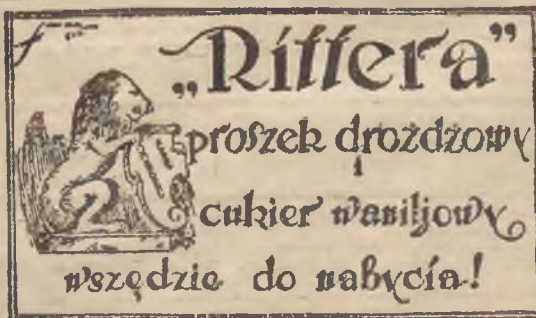 „Rittera”
proszek drożdżowy
i
cukier waniljowy
wszędzie do nabycia!